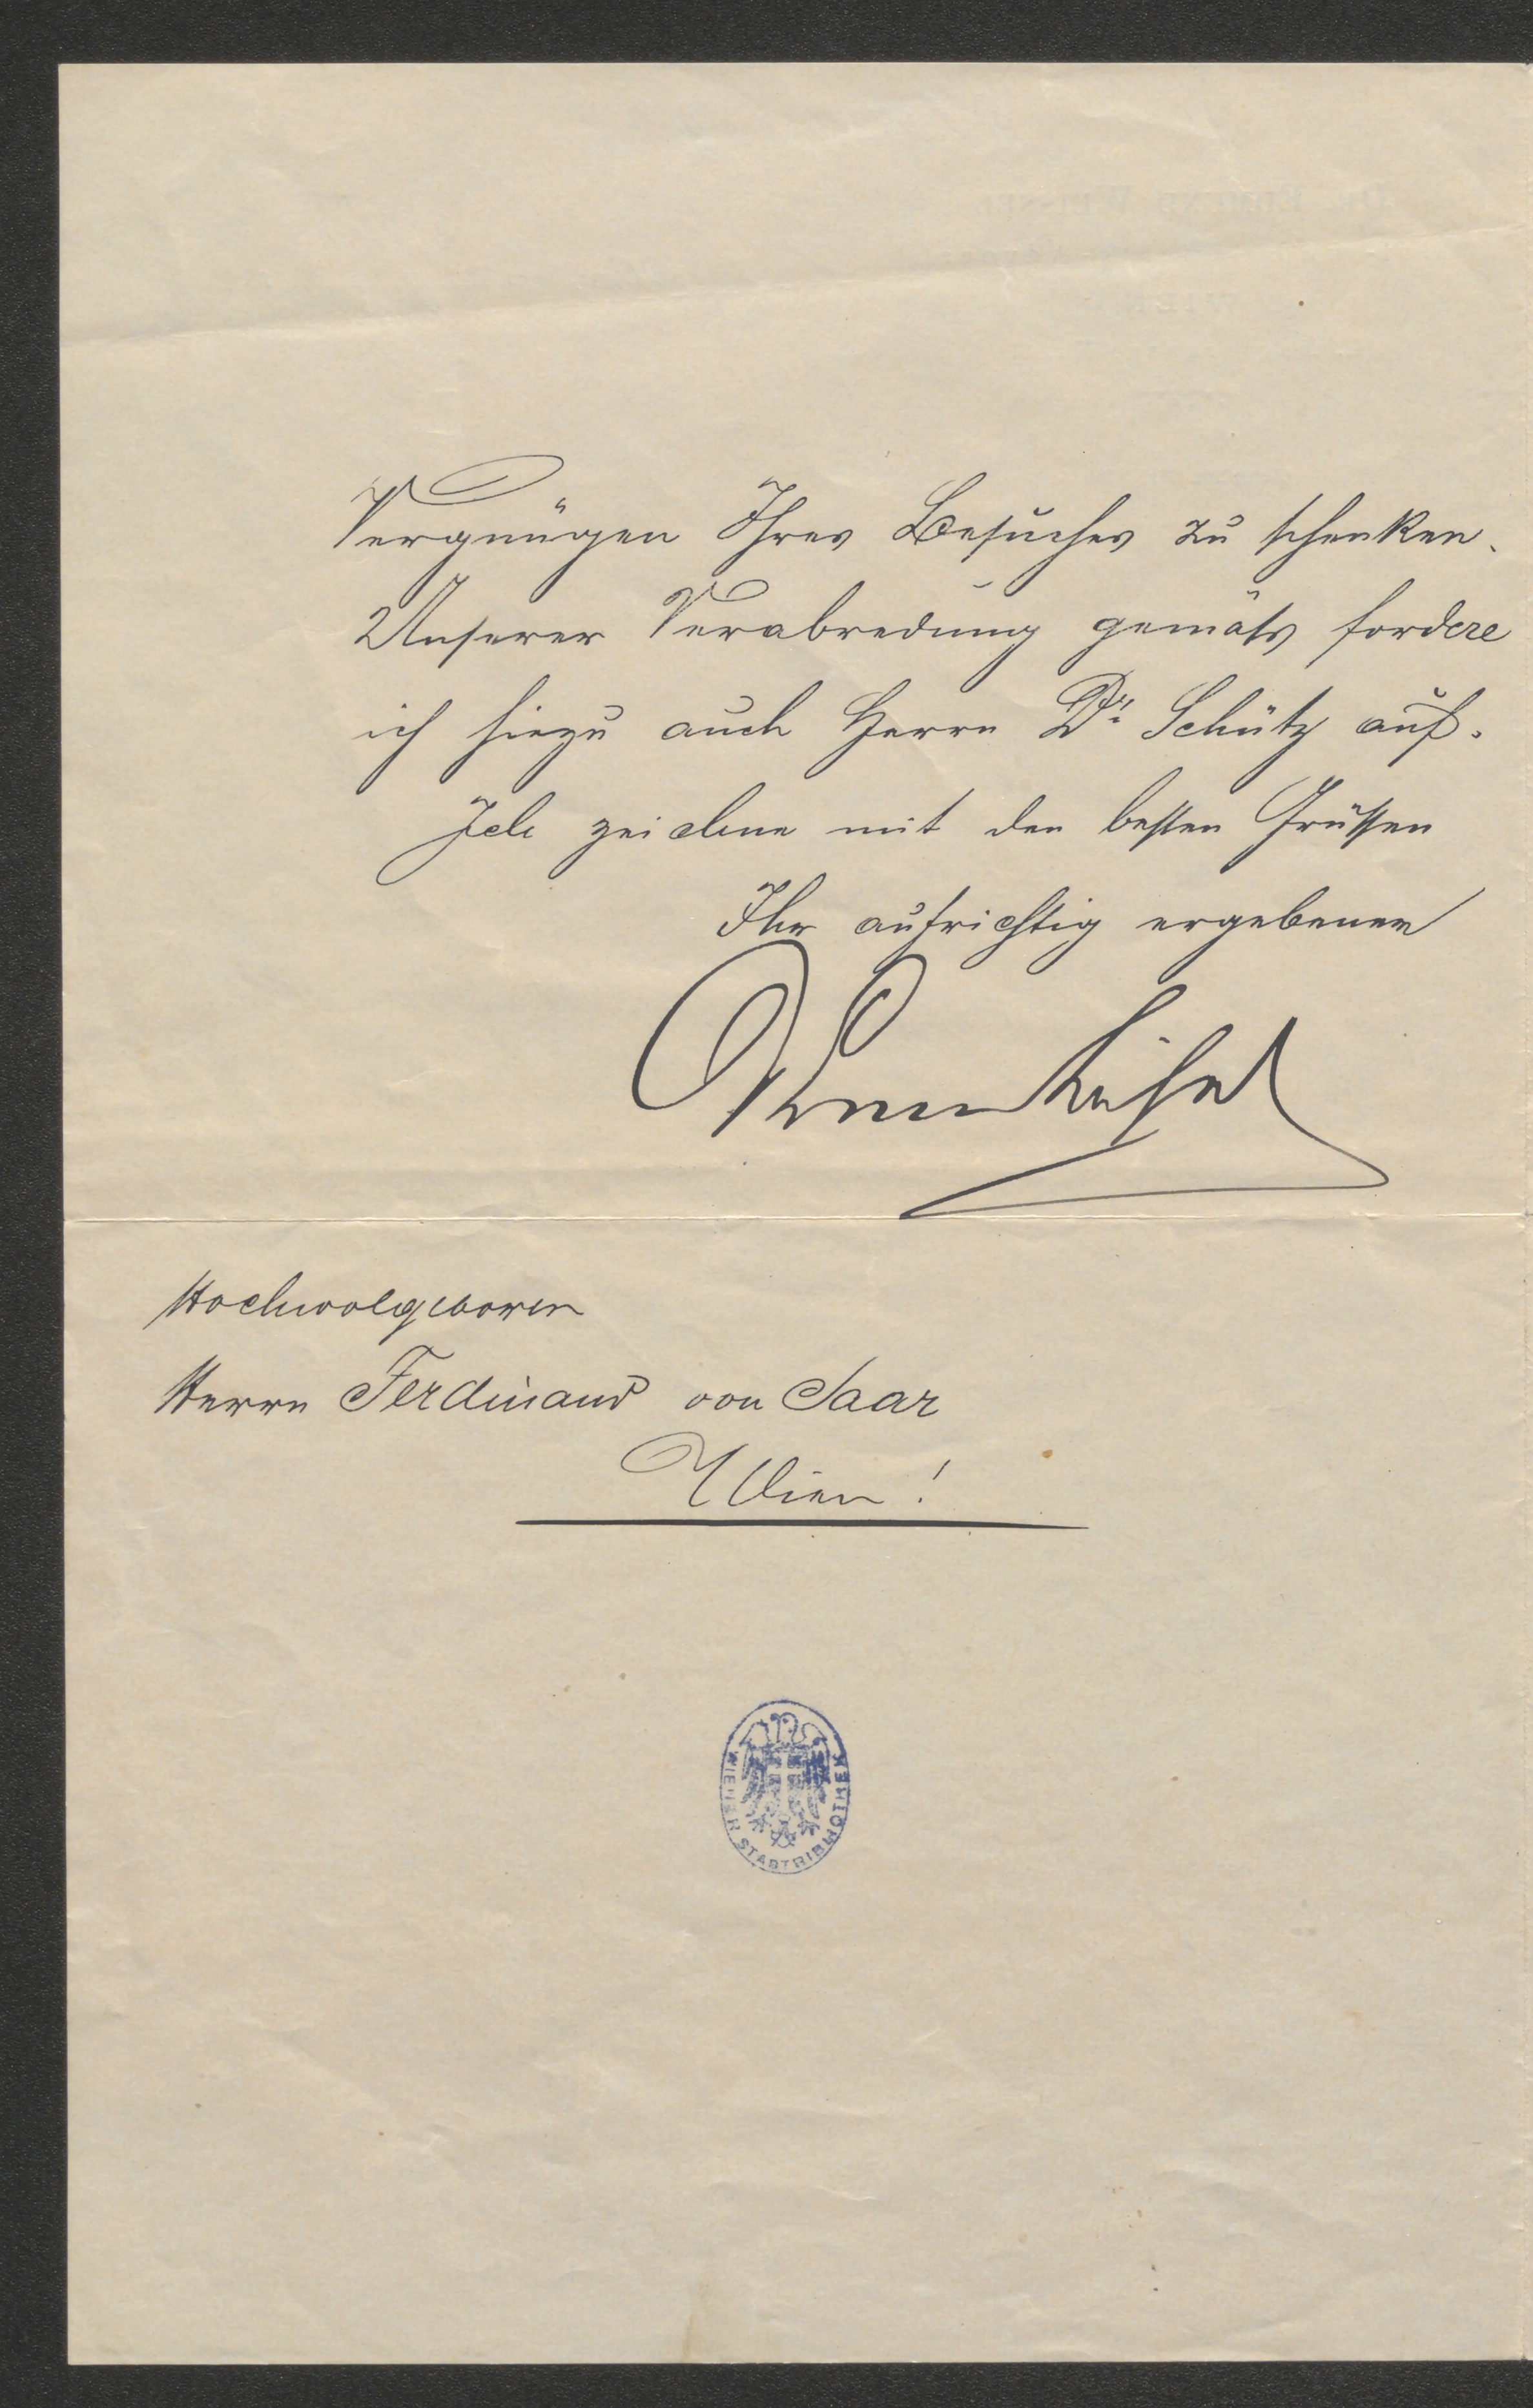 Vergnügen Ihres Besuches zu schenken.
Unserer Verabredung gemäss fordere
ich hiezu auch Herrn Dr. Schütz auf.
Ich zeichne mit den besten Grüssen
Ihr aufrichtig ergebener
Hochwolgeboren
Herrn Ferdinand von Saar
Wien!
WIENER STADTBIBLIOTHEK